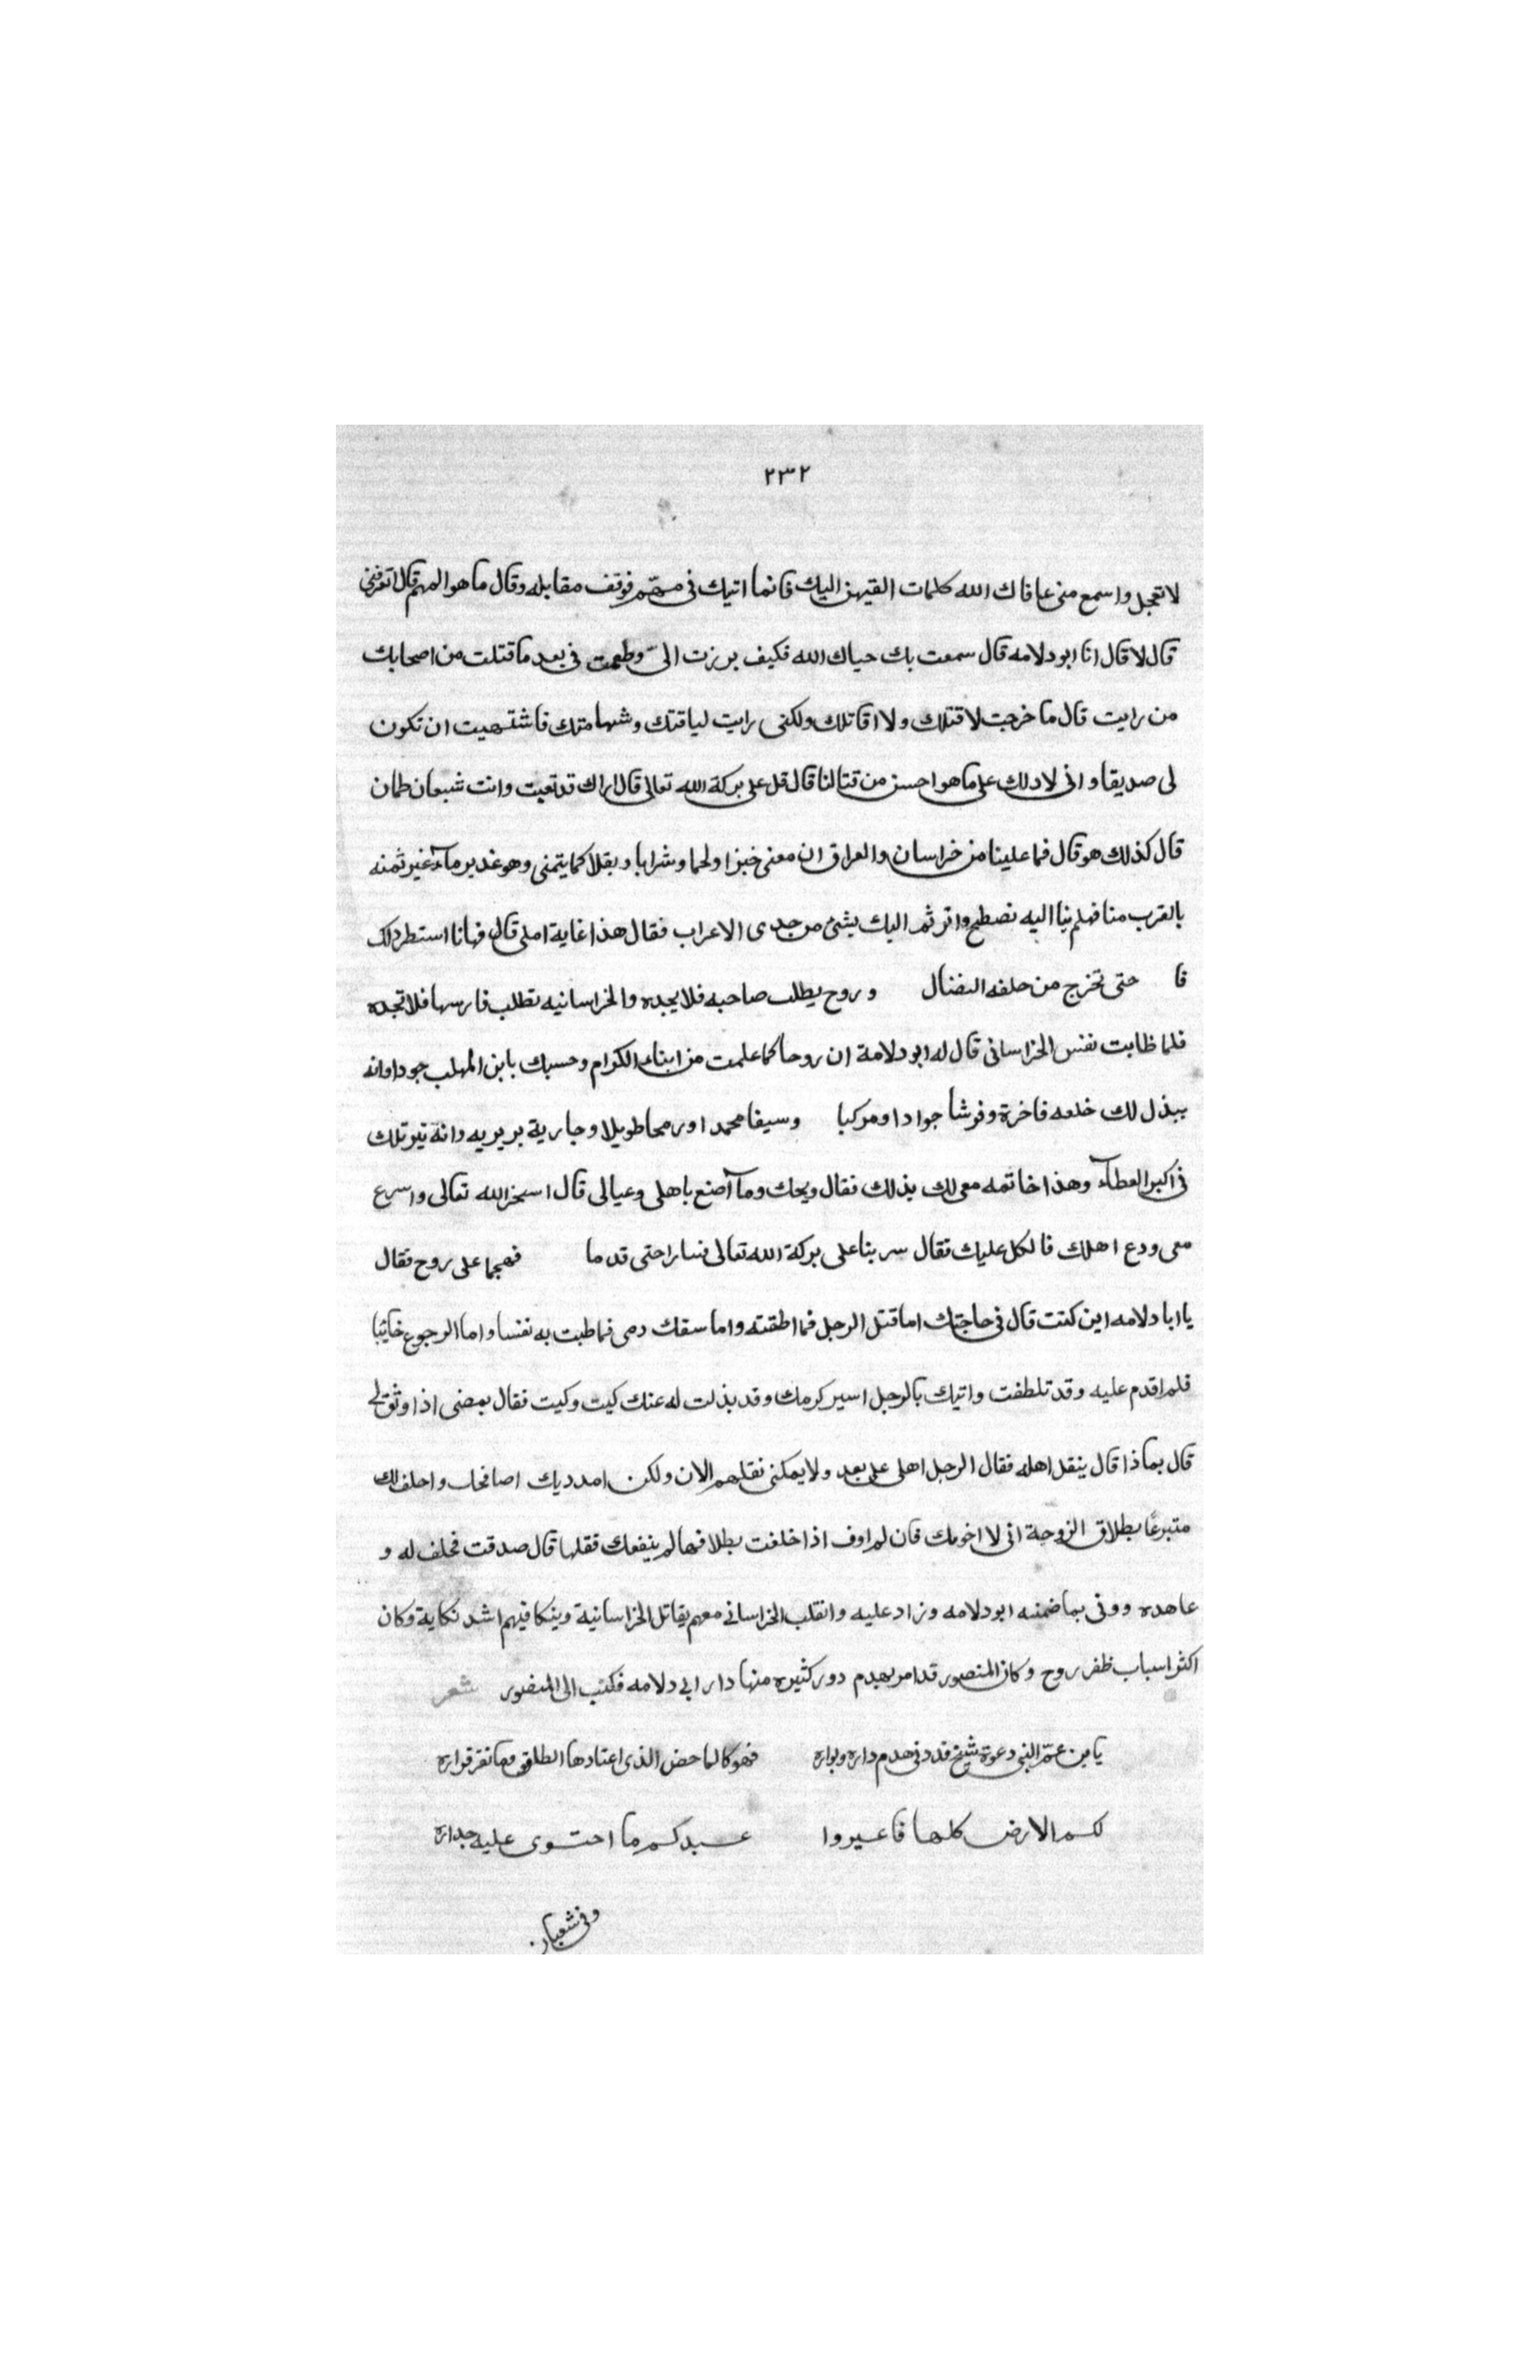 ٢٣٢
لا تعجل واسمع منى عافاك الله كلمات القيهن اليك فانما اتيك فى مهم فوقف مقابله وقال ما هو المهم قال اتعرفنى
قال لا قال انا ابو دلامه قال سمعت بك حياك الله فكيف برزت الىّ وطمعت فى بعد ما قتلت من اصحابك
من رايت قال ما خرجت لاقتلك ولا اقاتلك ولكنى رايت لياقتك وشهامتك فاشتهيت ان تكون
لى صديقا وانى لادلك على ما هو احسن من قتالنا قال قل على بركة الله تعالى قال اراك قد تعبت وانت شبعان ظمان
قال كذلك هو قال فما علينا من خراسان والعراق ان معى خبزا ولحما وشرابا وبقلا كما يتمنى وهو غدير مآء غير
بالقرب منا فهلم بنا اليه نصطبح واترنم اليك بشئ من حدى الاعراب فقال هذا غاية املى قال فهانا استطرد لك
فا حتى تخرج من حلفه النضال وروح يطلب صاحبه فلا يجده والخراسانيه تطلب فارسها فلا تجده
فلما ظابت نفس الخراسانى قال له ابو دلامة ان روحا كما علمت من ابناء الكرام وحسبك بابن المهلب جودا وانه
يبذل لك خلعه فاخرة وفرشا جوادا ومركبا وسيفا محمدا ورمحا طويلا وجارية بربريه وانه
فى اكبر العطآء وهذا خاتمه معى لك بذلك فقال ويحك ومآ اصنع باهلى وعيالى قال استخر الله تعالى واسرع
معى ودع اهلك فالكل عليك فقال سر بنا على بركة الله تعالى فسارا حتى قدما فهجما على روح فقال
يا ابا دلامه اين كنت قال فى حاجتك اما قتل الرجل فما اطقته واما سفك دمى فما طبت به نفسا واما الرجوع خايبا
فلم اقدم عليه وقد تلطفت واتيك بالرجل اسير كرمك وقد بذلت له عنك كيت وكيت فقال يمضى اذا وثق لى
قال بماذا قال ينقل اهله فقال الرجل اهلى على بعد ولا يمكنى نقلهم الان ولكن امدد يدك اصافحك واحلف لك
متبرعًا بطلاق الزوجة انى لا اخونك فان لم اوف اذا حلفت بطلاقها لم ينفعك نقلها قال صدقت فحلف له و
عاهده ووفى بما ضمنه ابو دلامه وزاد عليه وانقلب الخراسانى معهم يقاتل الخراسانية وينكا فيهم اشد نكاية وكان
اكثر اسباب ظفر روح وكان المنصور قد امر بهدم دور كثيره منها دار ابى دلامه فكتب الى المنصور شعر
يا بن عمّ النبى دعوة شيخ قد دنى هدم داره وبواره فهو كالماخض الذى اعتادها الطلق وما قراره
لكم الارض كلها فاعيروا عبدكم ما احتوى عليه جداره
وفى شعبان